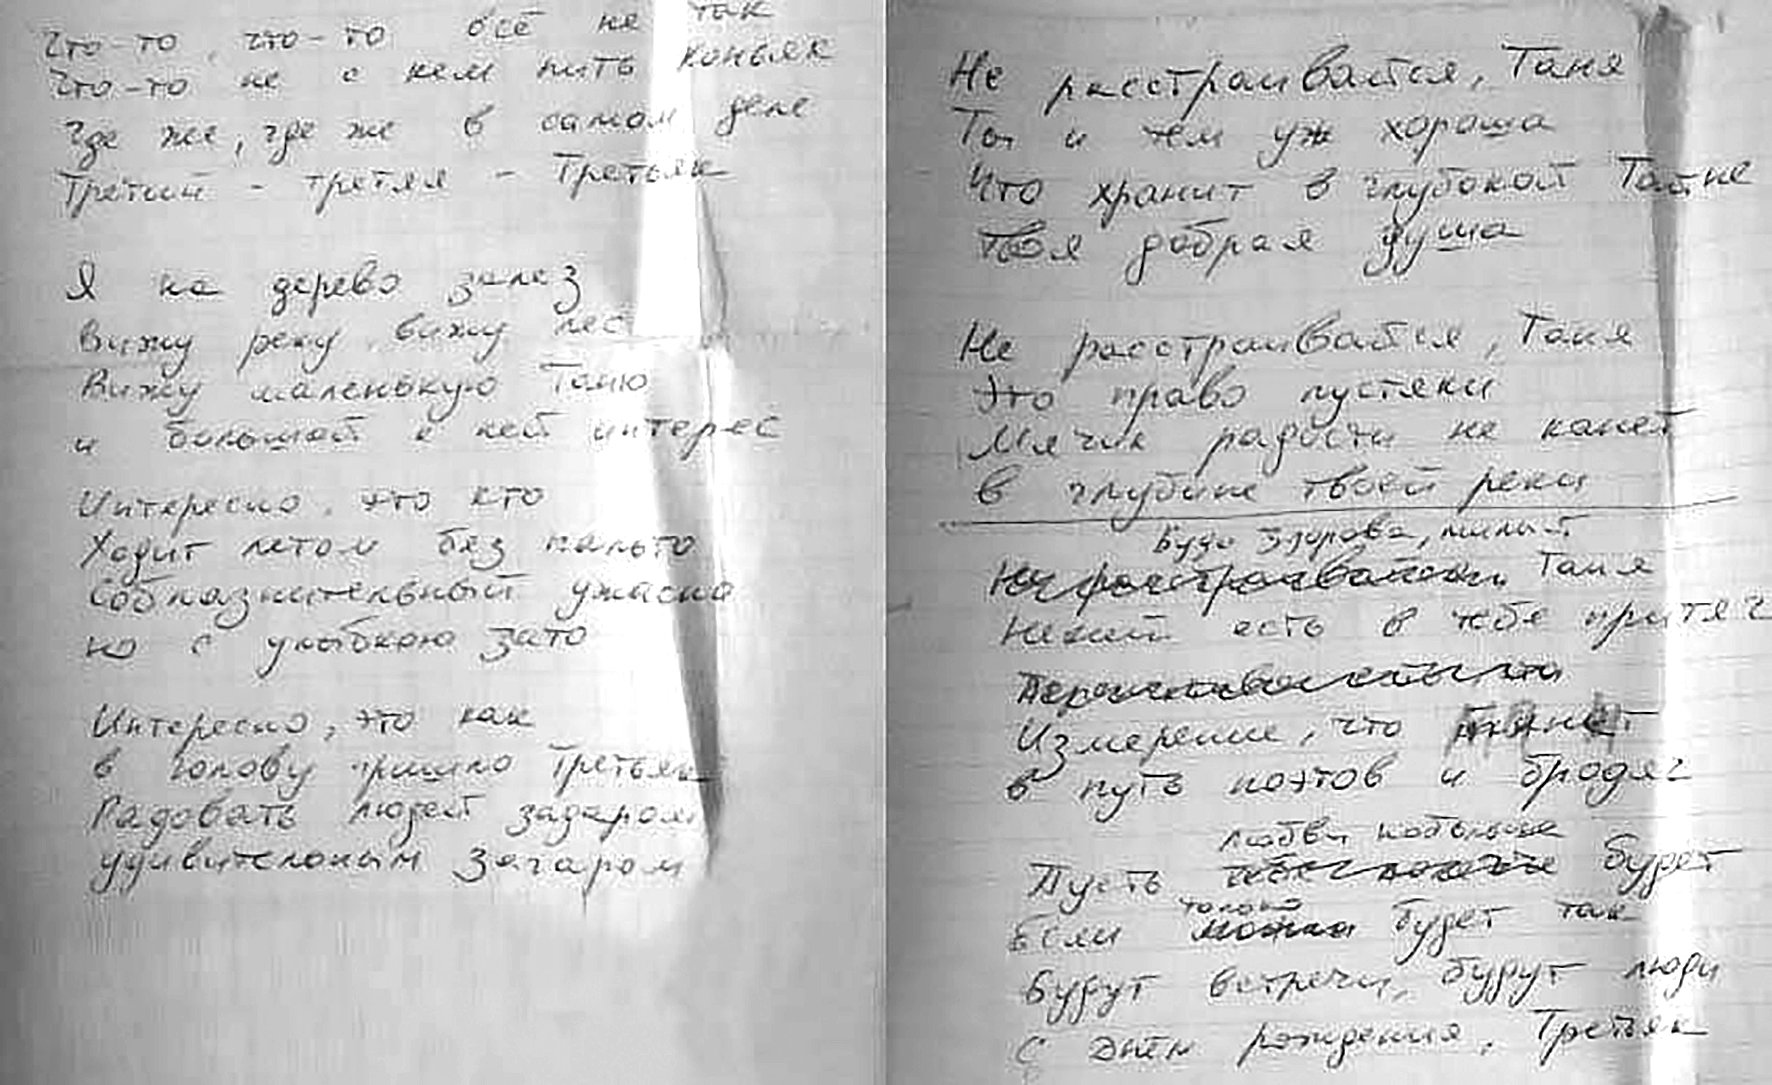 Что-то, что-то всё не так
Что-то не с кем пить коньяк
Где же, где же в самом деле
Третий - третяя - Третьяк
Я на дерево залез
Вижу реку, вижу лес
Вижу маленькую Таню
и большой к ней интерес
Интересно, это кто
Ходит летом без пальто
Соблазнительный ужасно
но с улыбкою зато
Интересно, это как
в голову пришло Третьяк
Радовать людей задаром
удивительным загаром
Не расстраивайся, Таня
Ты и тем уж хороша
Что хранит в глубокой Тайне
Твоя добрая душа
Не расстраивайся, Таня
Это право пустяки
Мячик радости не канет
в глубине твоей реки
Будь здорова, милый
Не расстраивайся, Таня
Некий есть в тебе притяг
Измерение, что тянет
в путь поэтов и бродяг
любви побольше
Пусть будет
только
Если можно будет так
Будут встречи, будут люди
С Днём рождения, Третьяк